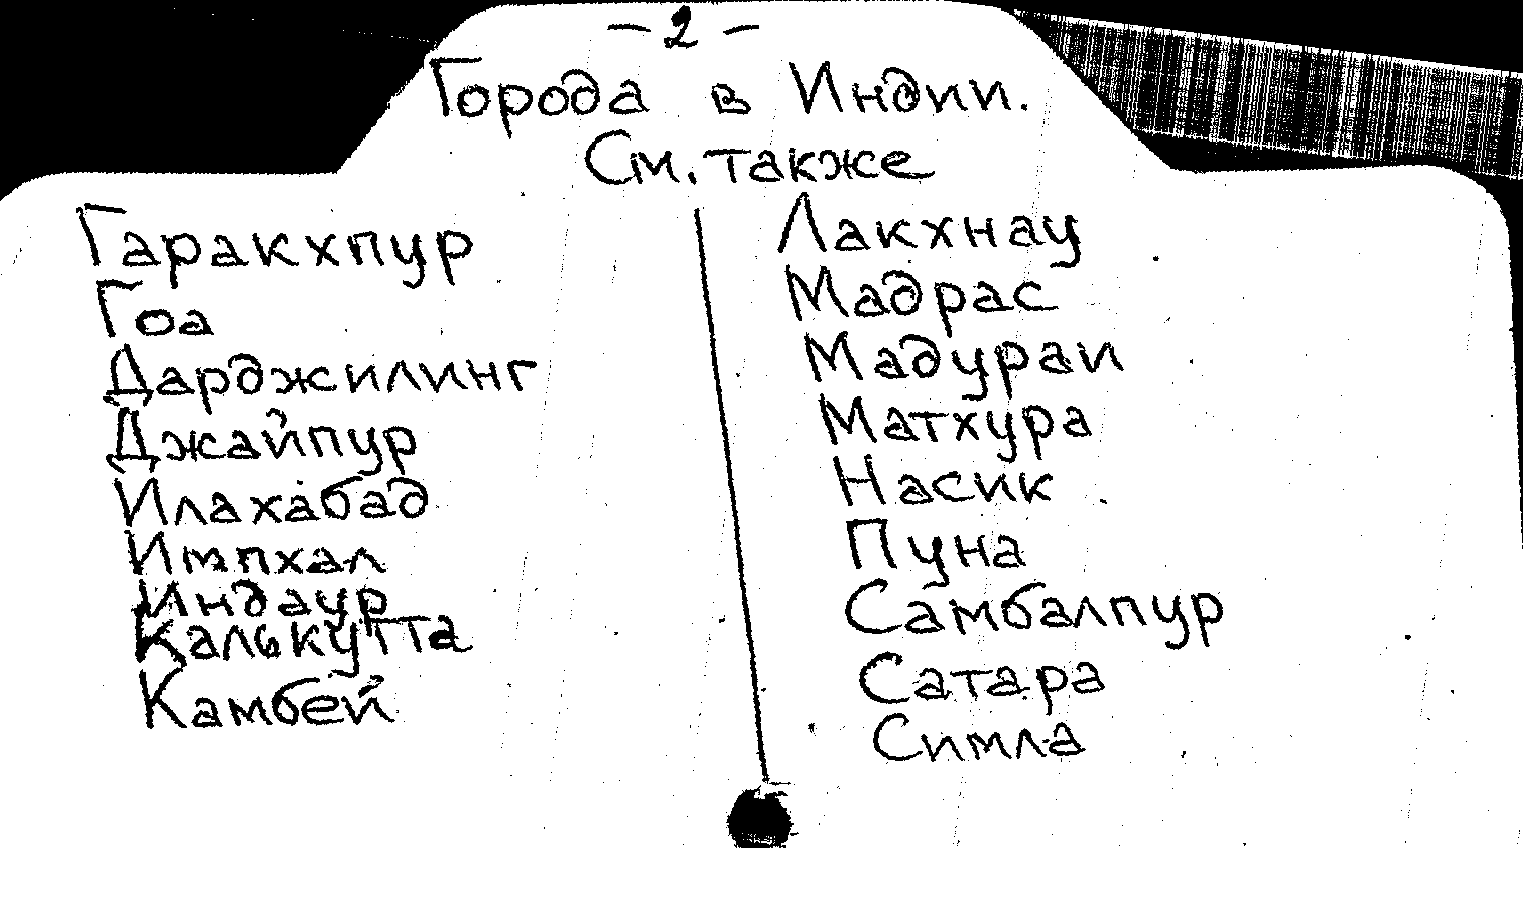 - 2 -
Города в Индии.
См. также
Гаракхпур
Гоа
Дарджилинг
Джайпур
Илахабад
Импхал
Индаур
Калькутта
Камбей
Лакхнау
Мадрас
Мадураи
Матхура
Насик
Пуна
Самбалпур
Сатара
Симла